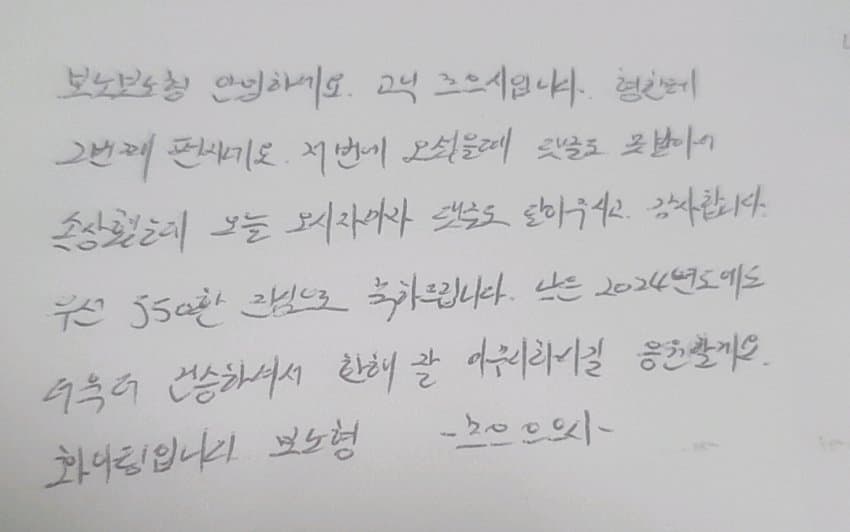 보노보노형 안녕하세요. 고닉 즈으시입니다. 형한테
2번째 편지네요. 저번에 오셨을때 댓글도 못받아서
속상했는데 오늘 오시자마자 댓글도 달아주시고. 감사합니다.
우선 550환 진심으로 축하드립니다. 남은 2024년도에도
더욱더 건승하셔서 한해 잘 마무리하시길 응원할게요.
화이팅입니다 보노형 -즈으으으시-